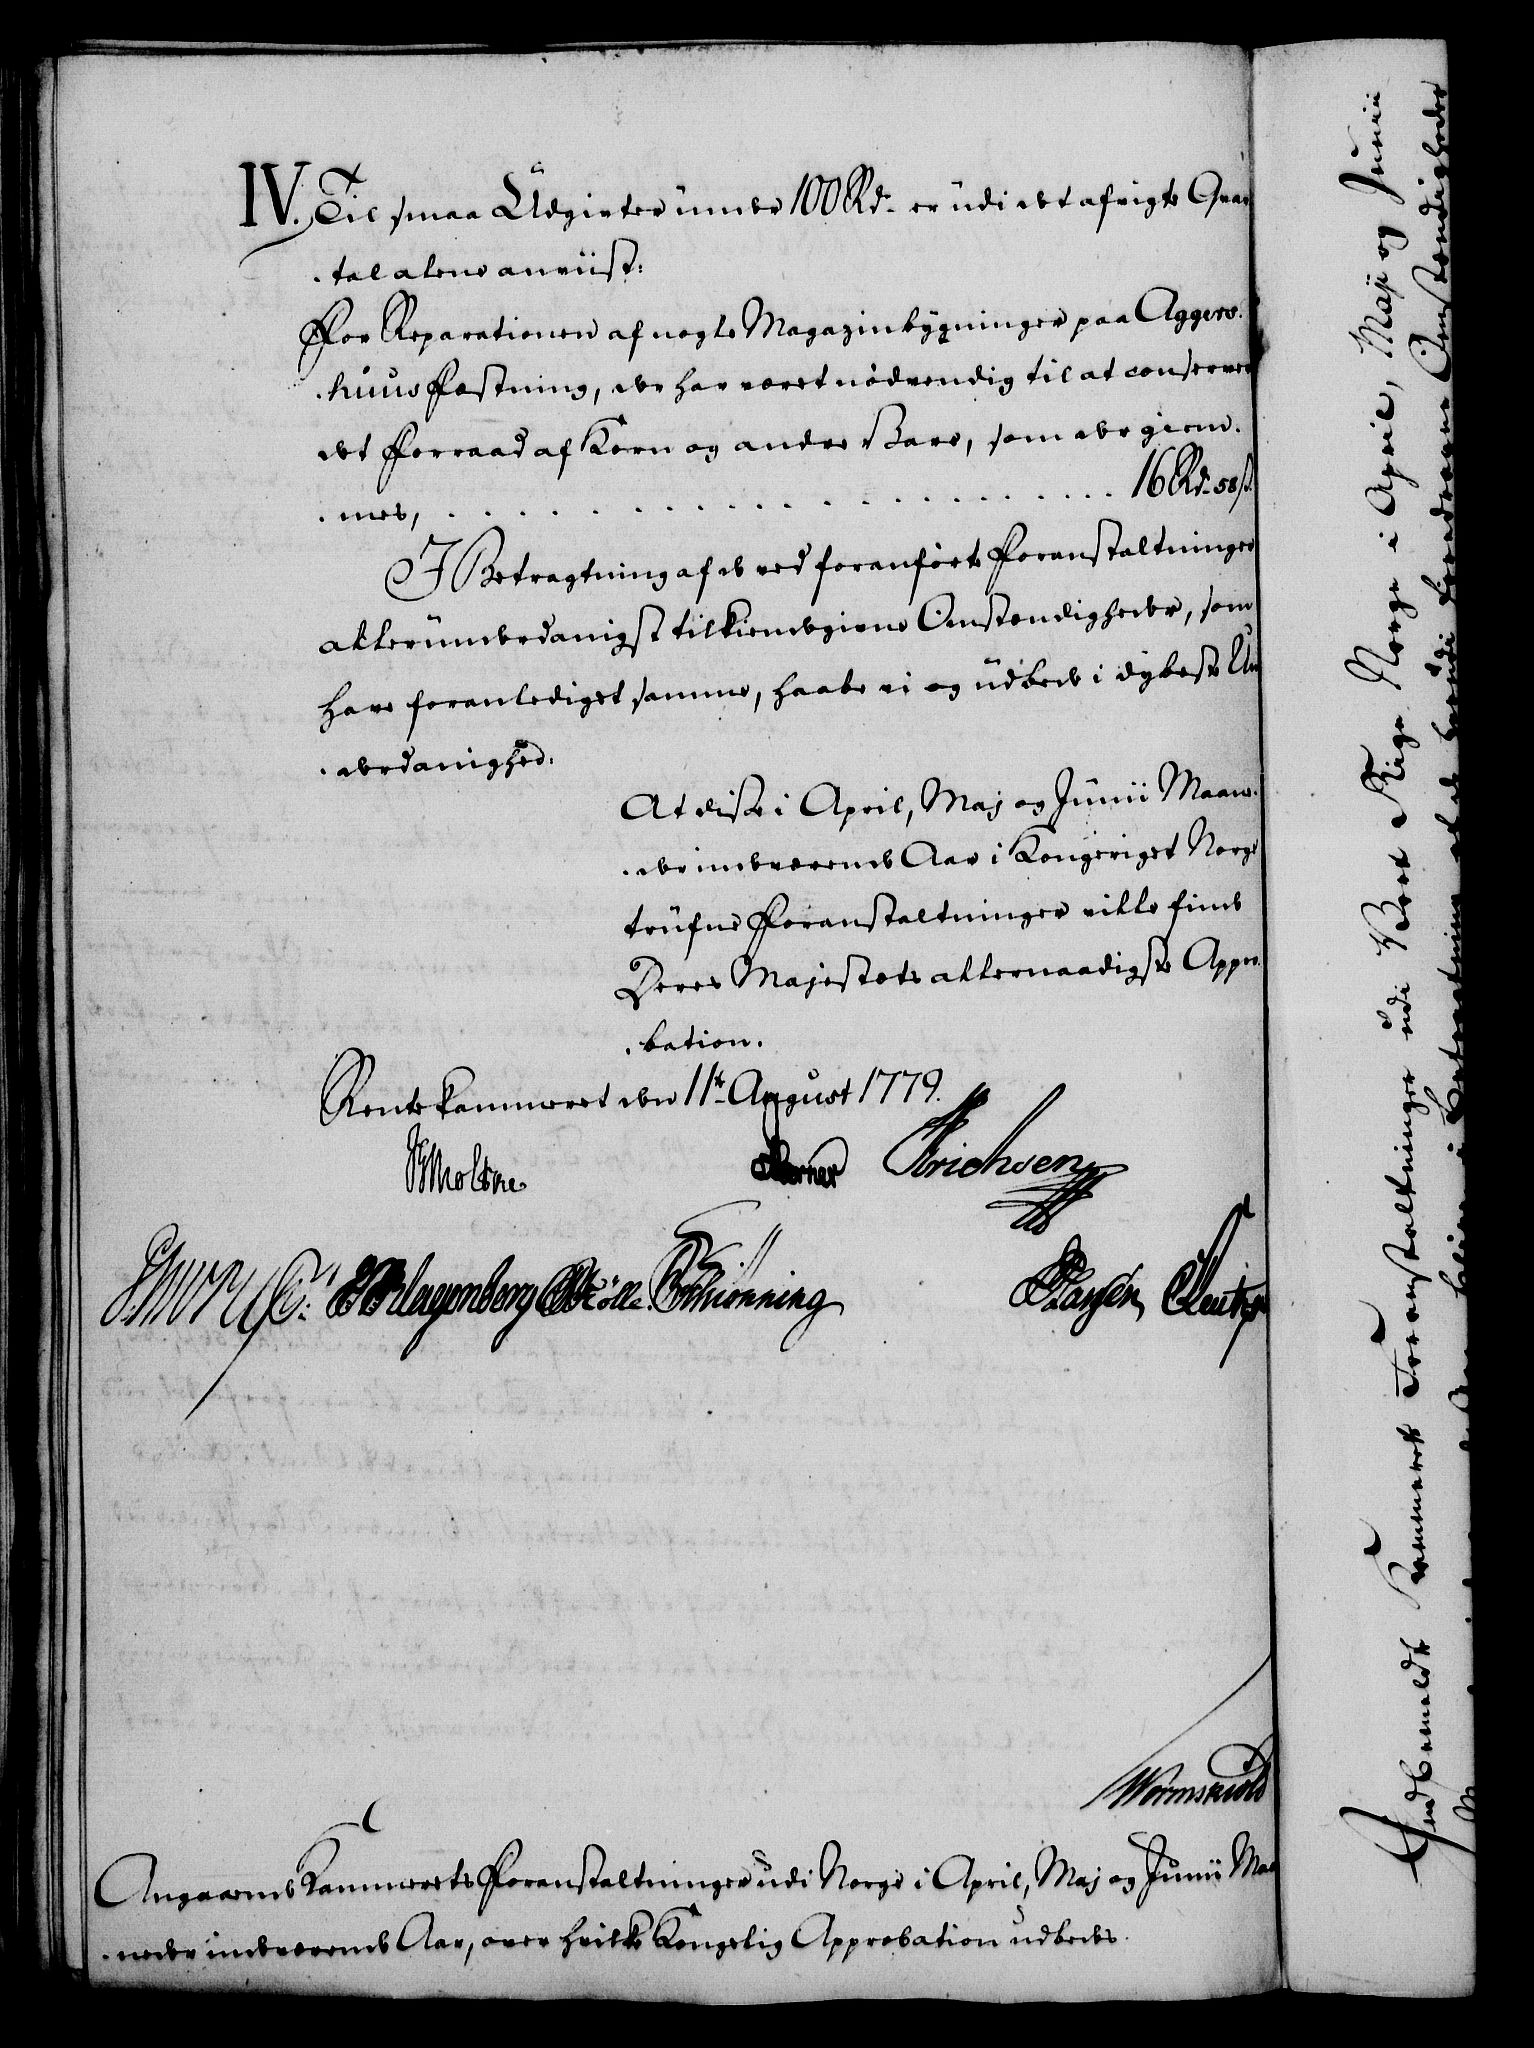 IV. Til smaa Udgivter under 100 Rd. er udi det afvigte Qvar
-tal alene anviist:
For Reparationen af nogle Magazinbygninger paa Aggers-
-huus Fæstning, der har været nødvendig til at conservere
det Forraad af Korn og andre Vare, som der giem-
-mes, . . . . . . . . . . . . . . . . . . 16 Rd. 58 s.
I Betragtning af de ved foranførte Foranstaltninger
allerunderdanigst tilkiendegivne Omstændigheder, som
have foranlediget samme, haabe vi og udbede i dybeste Un
-derdanighed:
At disse i April, Maj og Junii Maane-
-der indeværende Aar i Kongeriget Norge
trufne Foranstaltninger ville finde
Deres Majestæts allernaadigste Appro-
-bation.
Rentekammeret den 11te August 1779.
Moltke Berner Erichsen
Klagenberg Schiønning Hansen
Wormskiold
Angaaende Kammerets Foranstaltninger udi Norge i April, Maj og Junii Maa
-neder indeværende Aar, over hvilke Kongelig Approbation udbedes.
Indbemeldte Kammerets Foranstaltninger udi Vort Rige Norge i April, Maji og Junii